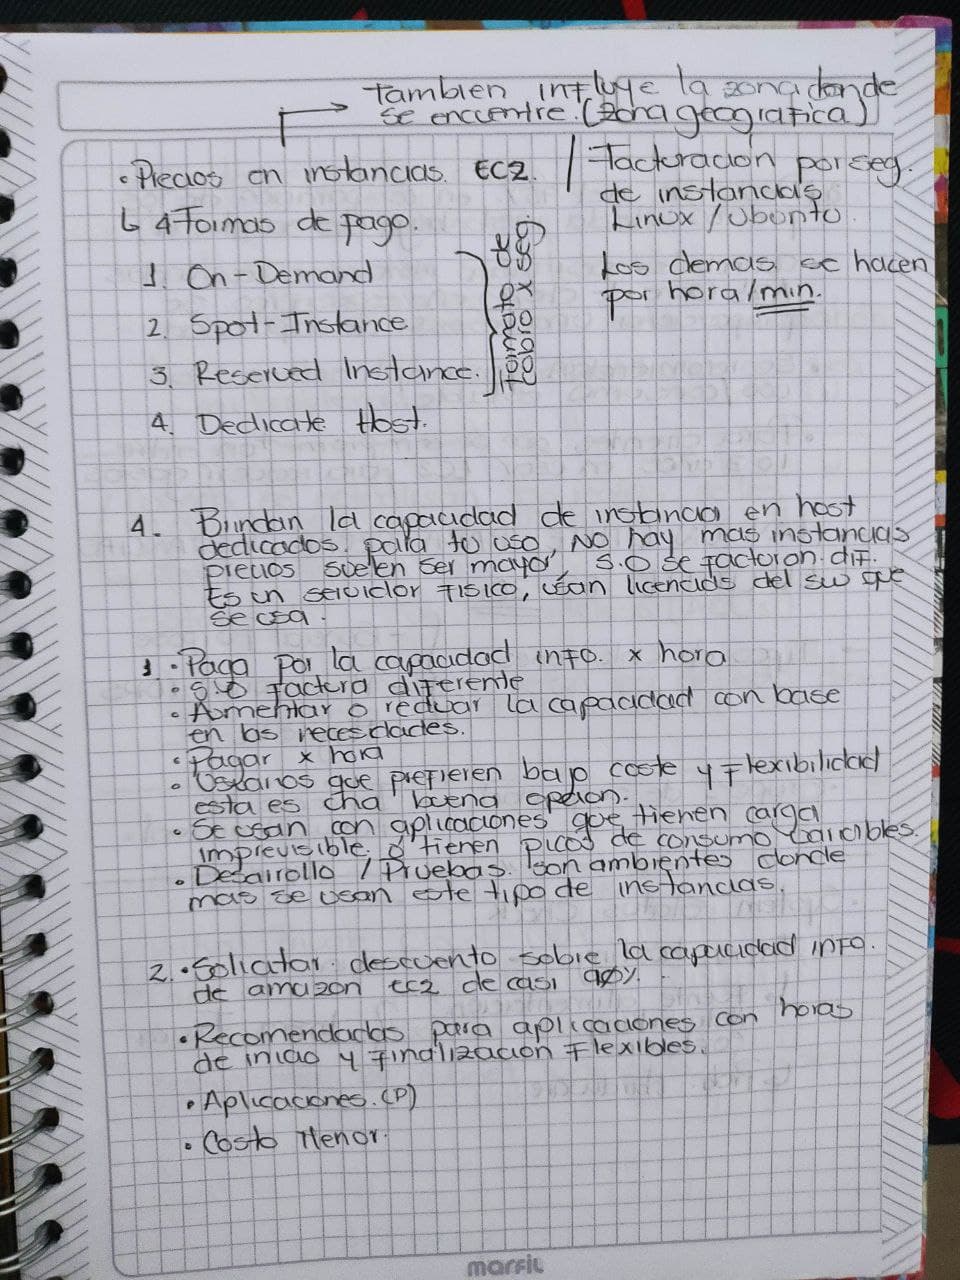 tambien influye la zona donde
se encuentre. (zona geografica)
• Precios en instancias. EC2.
↳ 4 Formas de pago.
1. On-Demand
2. Spot-Instance
3. Reserved Instance.
4. Dedicate Host.
pago x seg
Facturacion por seg.
de instancias
Linux / Ubunto.
Los demas se hacen
por hora/min.
4. Brindan la capacidad de instancia en host
dedicados para tu uso, NO hay mas instancias
precios suelen ser mayor, S.O se facturan dif.
Es un servidor fisico, usan licencias del sw que
se usa.
1. • Paga por la capacidad info. x hora
• S.O factura diferente
• Aumentar o reducir la capacidad con base
en las necesidades.
• Pagar x hora
• Usuarios que prefieren bajo coste y flexibilidad
esta es una buena opcion.
• Se usan con aplicaciones que tienen carga
imprevisible o tienen picos de consumo
• Desarrollo / Pruebas. son ambientes donde
mas se usan este tipo de instancias.
2. • Solicitar descuento sobre la capacidad info.
de amazon EC2 de casi 90%.
• Recomendadas para aplicaciones con horas
de inicio y finalización flexibles.
• Aplicaciones. (P)
• Costo Menor.
marfil